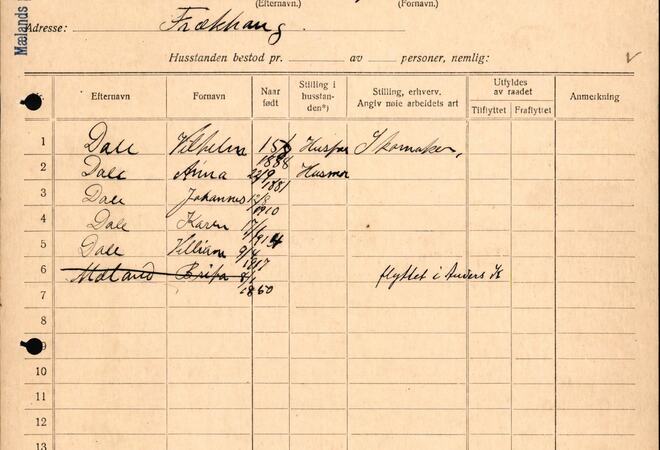 (Efternavn.) (Fornavn.)
Mælands
Adresse: Frækhaug
Husstanden bestod pr. av personer, nemlig:
Efternavn Fornavn Naar født Stilling i husstanden*) Stilling, erhverv. Angiv nøie arbeidets art Utfyldes av raadet Tilflyttet Fraflyttet Anmerkning
1 Dale Vilhelm 15/8 1888 Husfar Skomaker,
2 Dale Anna 22/9 1881 Husmor
3 Dale Johannes 12/8 1910
4 Dale Karen 17/1 1914
5 Dale Villiam 9/4 1917
6 Mæland Brita 8/1 1860 flyttet i Anders
7
8
9
10
11
12
13